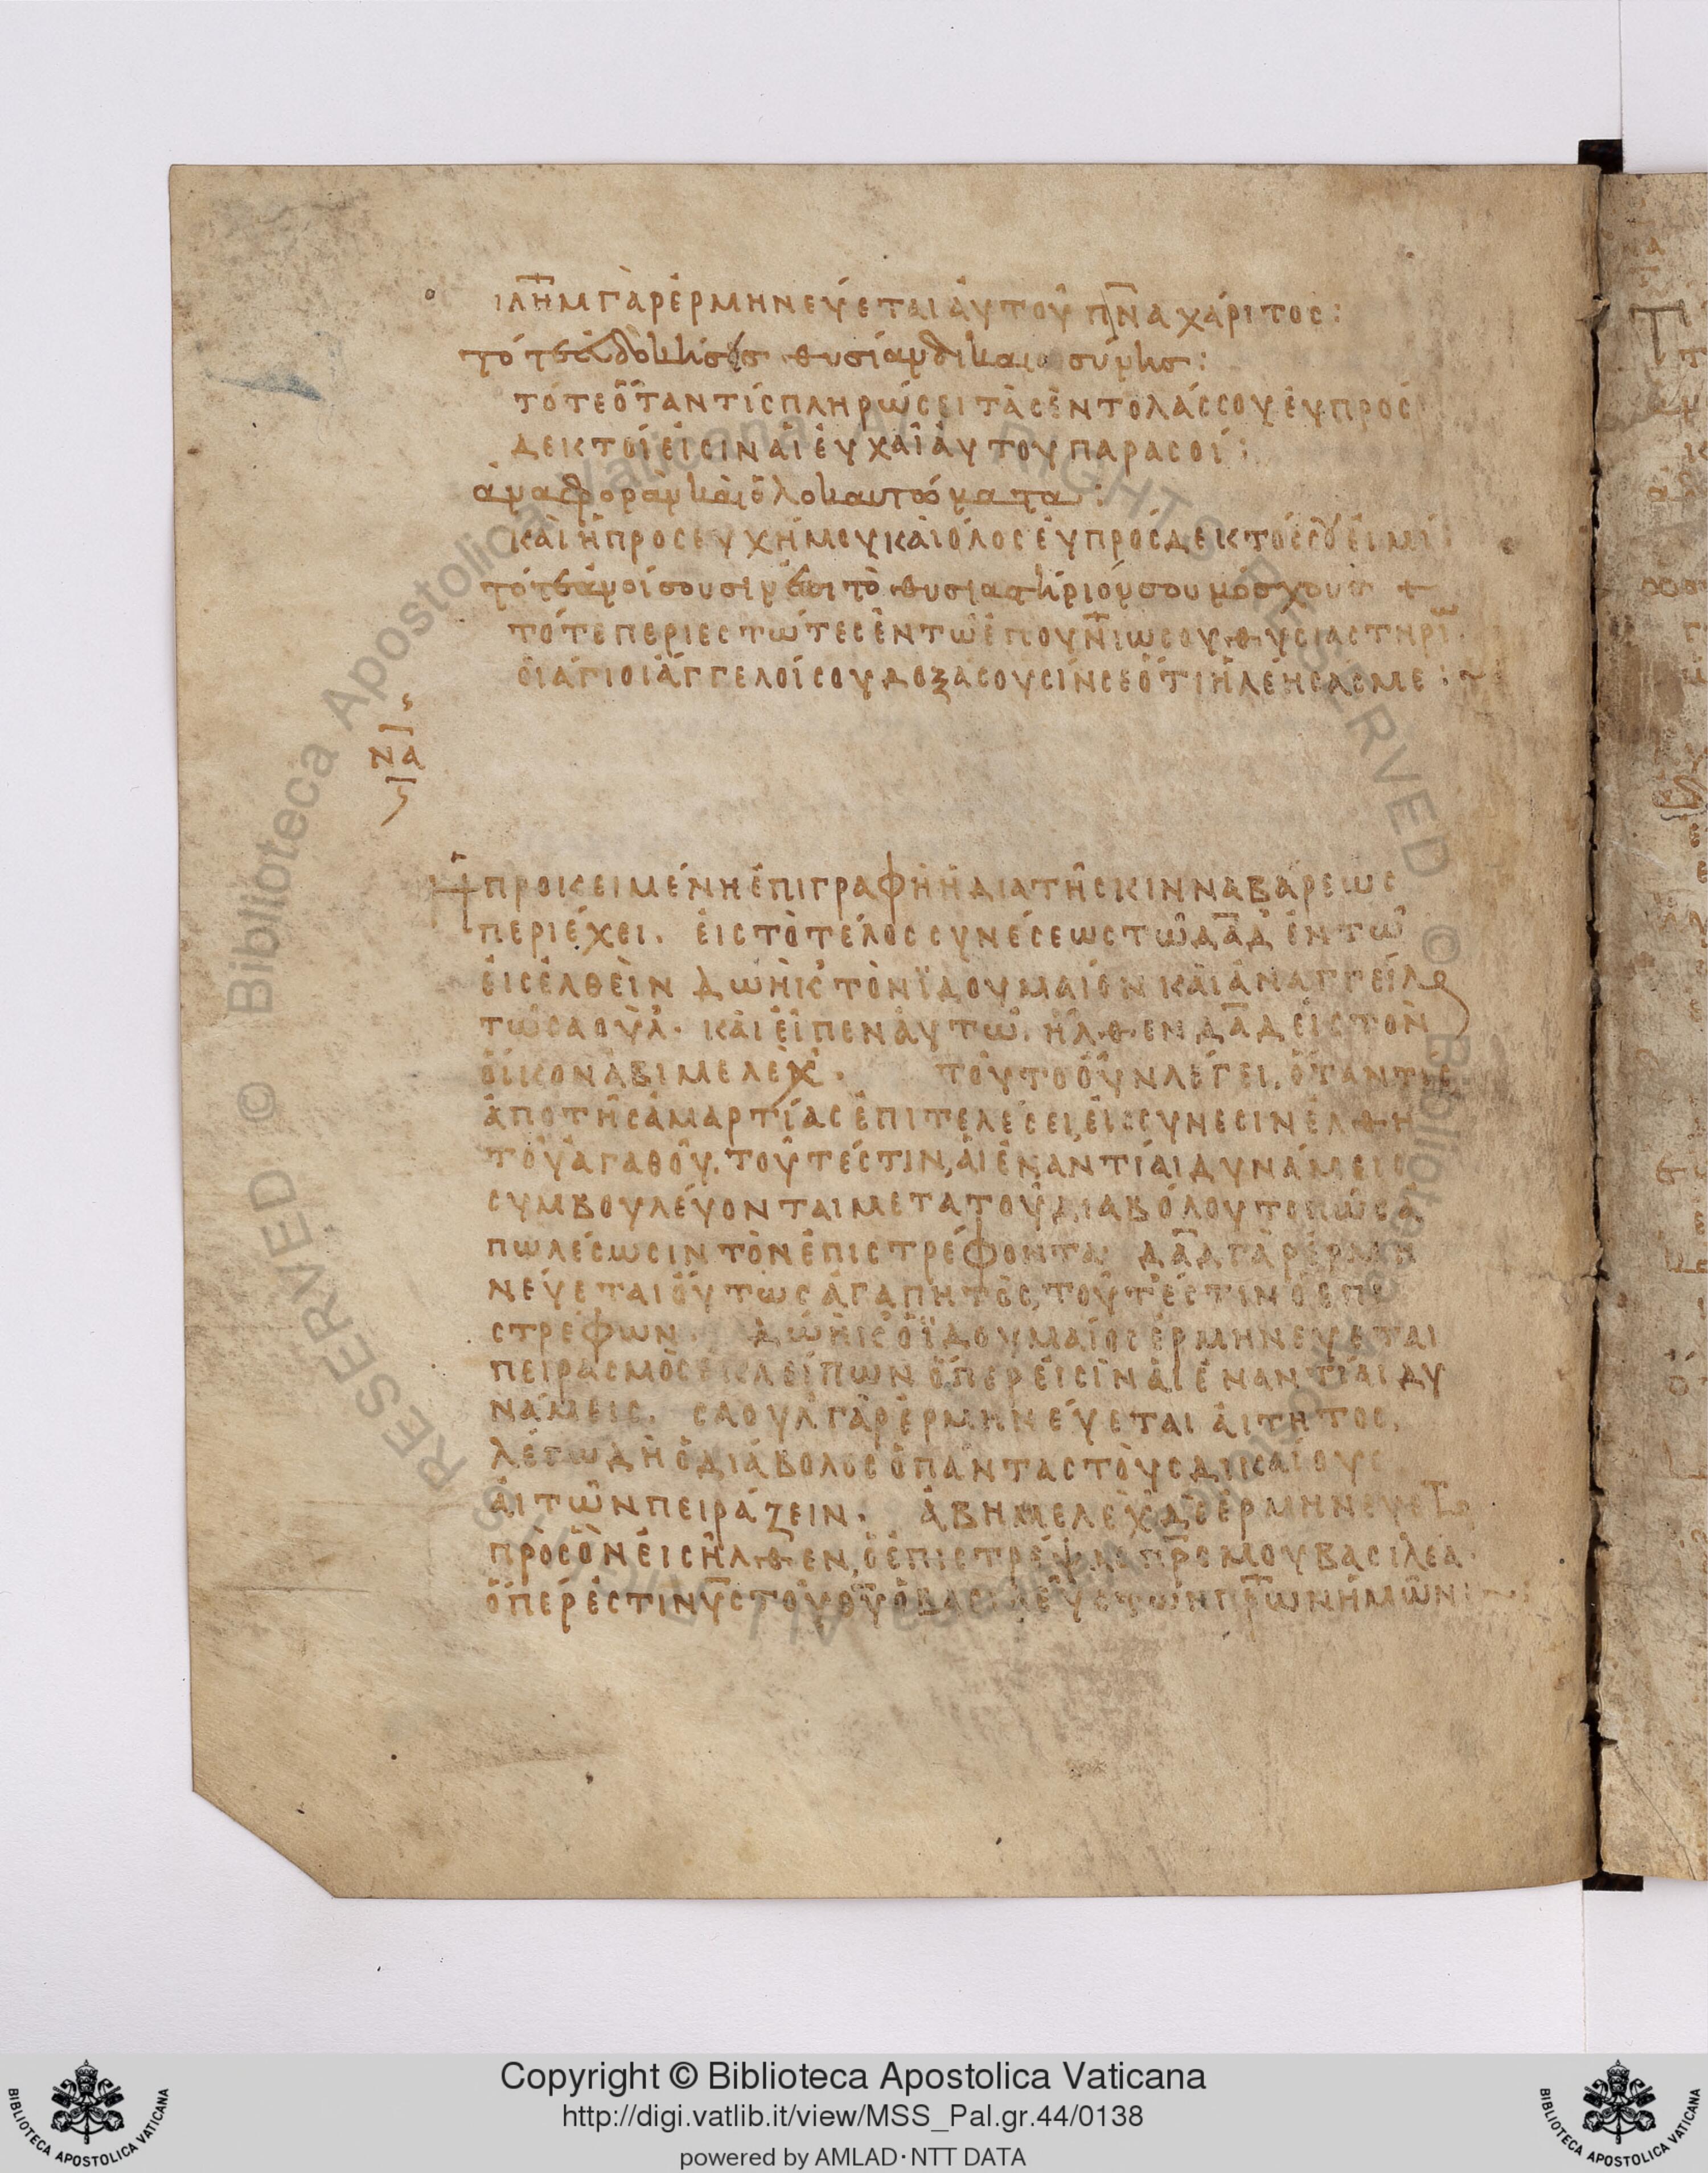 ιλη̅μ γὰρ ἑρμηνεύεται ἀυτοῦ πν̅α χάριτος:
τότε ἐυδοκήσεις θυσίαν δικαιοσύνης:
τότε ὅταν τίς πληρώσει τὰς ἐντολάς σου ἐυπρόσ
δεκτοί εἰσιν αἱ ἐυχαὶ ἀυτου παρα σοί:
ἀναφορὰν καὶ ὁλοκαυτώματα:
καὶ ἡ προσευχή μου καὶ ὅλος ἐυπρόσδεκτός σοῦ εἰμί:
τότε ἀνοίσουσιν ἐπι τὸ θυσιαστήριόν σου μόσχους +
τότε περιεστῶτες ἐν τῶ ἐπουν̅ιω σου θυσιαστηρι
ὁι ἁγιοι ἄγγελοί σου δοξάσουσίν σε ὅτι ἠλέησάς με :~
να
ϛ
Ἡ προικειμένη ἐπιγραφὴ ἡ δια τῆς κινναβάρεως
περιέχει. ἐις τὸ τέλος συνέσεως τῶ δα̅δ ἐν τῶ
ἐισελθεὶν Δωὴκ τὸν ϊδουμαίον καὶ ἀναγγείλαι
τῶ σαούλ. καὶ εἶπεν ἀυτῶ. ἦλθεν δα̅δ εἰς τον
οἶκον ἀβιμελέχ. τοῦτο οὖν λέγει, ὅταν τις
ἀπο τῆς ἁμαρτίας ἐπιτελέσει, εἰς συνεσιν ἐλθη
τοῦ ἀγαθοῦ. τοῦτέστιν, ἁι ἐναντίαι δυνάμεις
συμβουλέυονται μετα τοῦ διαβόλου το πῶς ἀ
πωλέσωσιν τὸν ἐπιστρέφοντα δα̅δ γὰρ ἑρμη
νέυεται ὅυτως ἀγαπητὸς, τοῦτέστιν ὁ επι
στρέφων. Δωὴκ ὁ ϊδουμαίος ἑρμηνευεται
πειρασμὸς ἐκλείπων ὅπερ εἰσὶν ἁι ἐναντίαι δυ
νάμεις. σαουλ γὰρ ἑρμηνέυεται ἀιτητος,
λέγω δὴ ὁ διάβολος ὁ πάντας τὸυς δικαίους
ἀιτῶν πειράζειν. ἀβημελεχ δε ἑρμηνευετ
πρὸς ὃν εἰσῆλθεν, ὁ ἐπιστρέψας π̅ρ̅ς μου βασιλεα.
ὅπερ ἐστιν υ̅ς τοῦ θ̅υ ὁ βασιλεὺς τῶν π̅ρ̅ων ἡμῶν:~
Copyright © Biblioteca Apostolica Vaticana
http://digi.vatlib.it/view/MSS_Pal.gr.44/0138
powered by AMLAD·NTT DATA
BIBLIOTECA APOSTOLICA VATICANA
BIBLIOTECA APOSTOLICA VATICANA